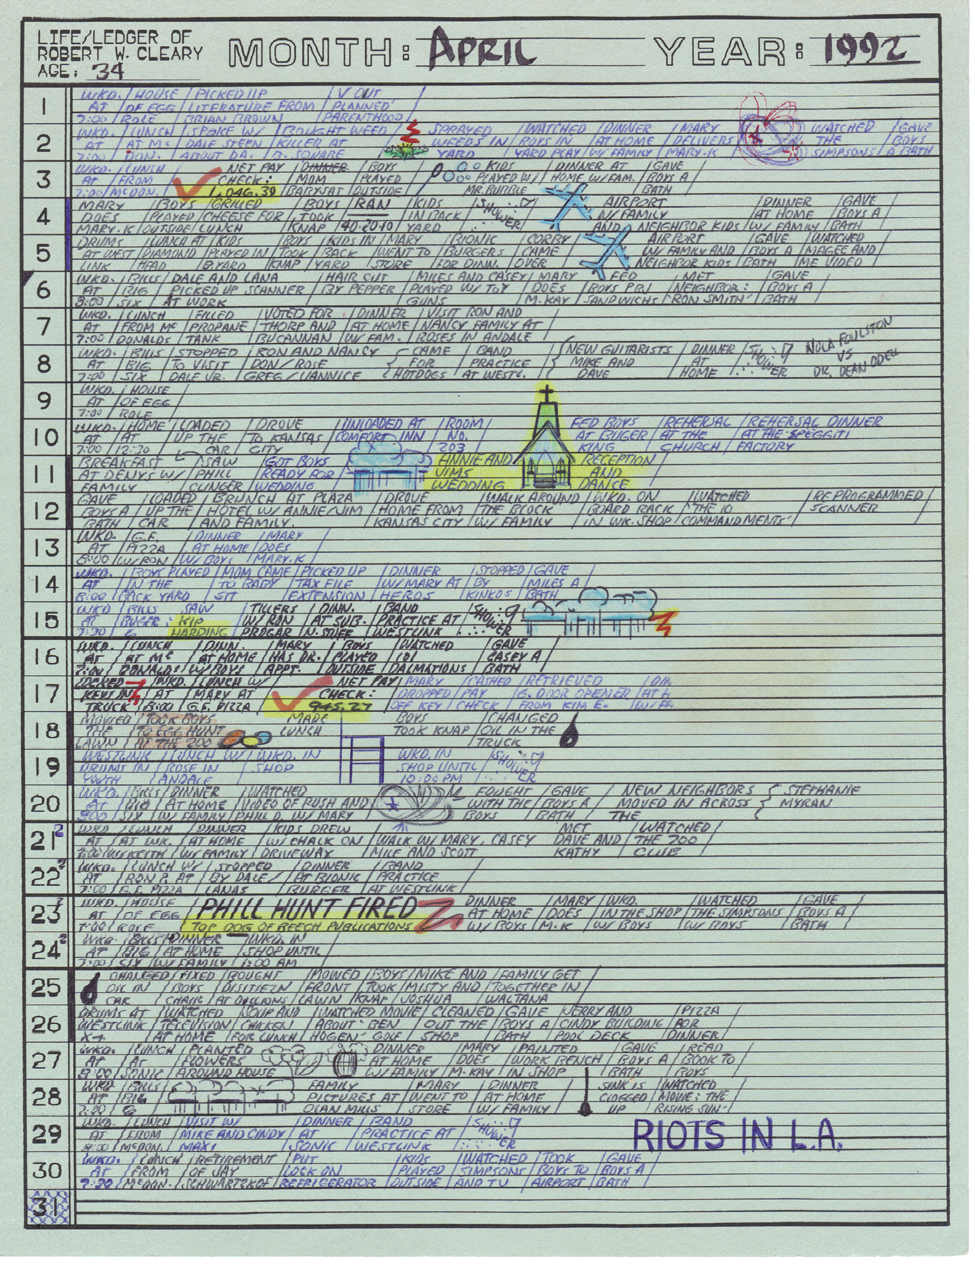 LIFE/LEDGER OF
ROBERT W. CLEARY
AGE: 34
MONTH: APRIL YEAR: 1992
1
WKD. / HOUSE / PICKED UP / V OUT
AT / OF EGG / LITERATURE FROM / PLANNED
7:00 / ROLE / BRIAN BROWN / PARENTHOOD
2
WKD. / LUNCH / SPOKE W/ / BOUGHT WEED / SPRAYED / WATCHED / DINNER / MARY / WATCHED / GAVE
AT / AT Mc / DALE STEEN / KILLER AT / WEEDS IN / BOYS IN / AT HOME / DELIVERS / THE / BOYS
7:00 / DON. / ABOUT DA. / R. SQUARE / YARD / YARD PLAY / W/ FAMILY / MARY-K / SIMPSONS / A BATH
3
WKD. / LUNCH / NET PAY / DINNER / BOY / KIDS / DINNER AT / GAVE
AT / FROM / CHECK: / MOM / PLAYED / PLAYED W/ / HOME W/ FAM. / BOYS A
7:00 / McDON. / 1,046.39 / BABYSAT / OUTSIDE / MR. BUBBLE / BATH
4
MARY / BOYS / GRILLED / BOYS / RAN / KIDS / SHOWER / AIRPORT / DINNER / GAVE
DOES / PLAYED / CHEESE FOR / TOOK / IN BACK / W/ FAMILY / AT HOME / BOYS A
MARY.K / OUTSIDE / LUNCH / KNAP / YARD / AND NEIGHBOR KIDS / W/ FAMILY / BATH
5
DRUMS / LUNCH AT / KIDS / BOYS / KIDS IN / MARY / BIONIC / CORBY / AIRPORT / GAVE / WATCHED
AT WEST / DIAMOND / PLAYED IN / TOOK / BACK / WENT TO / BURGERS / CAME / W/ FAMILY AND / BOYS A / MAGEE AND
LINK / HEAD / B.YARD / KNAP / YARD / STORE / FOR DINN. / OVER / NEIGHBOR KIDS / BATH / ME VIDEO
6
WKD. / BILLS / DALE AND LANA / HAIR CUT / MILES AND CASEY / MARY / FED / MET / GAVE
AT / BIG / PICKED UP SCANNER / BY PEPPER / PLAYED W/ TOY / DOES / BOYS PBJ / NEIGHBOR: / BOYS A
8:00 / SIX / AT WORK / GUNS / M.KAY / SANDWICHS / "RON SMITH" / BATH
7
WKD. / LUNCH / FILLED / VOTED FOR / DINNER / VISIT RON AND
AT / FROM Mc / PROPANE / THORP AND / AT HOME / NANCY FAMILY AT
7:00 / DONALDS / TANK / BUCANNAN / W/ FAM. / ROSES IN ANDALE
8
WKD. / BILLS / STOPPED / RON AND NANCY / CAME / BAND / NEW GUITARISTS / DINNER / SHOWER
AT / BIG / TO VISIT / DON / ROSE / FOR / PRACTICE / MIKE AND / AT
7:00 / SIX / DALE JR. / GREG / VANNICE / HOTDOGS / AT WESTL. / DAVE / HOME
NOLA FOULSTON
VS
DR. DEAN ODELL
9
WKD. / HOUSE
AT / OF EGG
7:00 / ROLE
10
WKD. / HOME / LOADED / DROVE / UNLOADED AT / ROOM / FED BOYS / REHERSAL / REHERSAL DINNER
AT / AT / UP THE / TO KANSAS / COMFORT INN / NO. / AT BUGER / AT THE / AT THE SPEGGITI
7:00 / 12:30 / CAR / CITY / 203 / KING / CHURCH / FACTORY
11
BREAKFAST / SAW / GOT BOYS / ANNIE AND / RECEPTION
AT DENYS W/ / PHIL / READY FOR / JIMS / AND
FAMILY / CLINGER / WEDDING / WEDDING / DANCE
12
GAVE / LOADED / BRUNCH AT PLAZA / DROVE / WALK AROUND / WKD. ON / WATCHED / REPROGRAMMED
BOYS A / UP THE / HOTEL W/ ANNIE/JIM / HOME FROM / THE BLOCK / BOARD RACK / "THE 10 / SCANNER
BATH / CAR / AND FAMILY. / KANSAS CITY / W/ FAMILY / IN WK. SHOP / COMMANDMENTS"
13
WKD. / G.F. / DINNER / MARY
AT / PIZZA / AT HOME / DOES
8:00 / W/ RON / W/ BOYS / MARY.K
14
WKD. / BOYS PLAYED / MOM CAME / PICKED UP / DINNER / STOPPED / GAVE
AT / IN THE / TO BABY / TAX FILE / W/ MARY AT / BY / MILES A
8:00 / BACK YARD / SIT / EXTENSION / HEROS / KINKOS / BATH
15
WKD / BILLS / SAW / TILLERS / DINN. / BAND / SHOWER
AT / BUGER: / KIP / W/ RON / AT SUB. / PRACTICE AT
7:30 / 6 / HARDING / PROGAR / N-STUFF / WESTLINK
16
WKD. / LUNCH / DINN. / MARY / BOYS / WATCHED / GAVE
AT / AT Mc / AT HOME / HAS DR. / PLAYED / 101 / CASEY A
7:00 / DONALDS / W/ BOYS / APPT. / OUTSIDE / DALMATIONS / BATH
17
LOCKED / WKD. / LUNCH W/ / NET PAY / MARY / CASHED / RETRIEVED
KEYS IN / AT / MARY AT / CHECK: / DROPPED / PAY / G. DOOR OPENER
TRUCK / 8:00 / G.F. PIZZA / 945.27 / OFF KEY / CHECK / FROM KIM E.
18
MOWED / TOOK BOYS / MADE / BOYS / CHANGED
THE / TO EGG HUNT / LUNCH / TOOK KNAP / OIL IN THE
LAWN / AT THE ZOO / TRUCK
19
WESTLINK / LUNCH W/ / WKD. IN / WKD. IN / SHOWER
DRUMS IN / ROSE IN / SHOP / SHOP UNTIL
/ ANDALE / 10:00 PM
20
WKD. / BILLS / DINNER / WATCHED / FOUGHT / GAVE / NEW NEIGHBORS / STEPHANIE
AT / BIG / AT HOME / VIDEO OF RUSH AND / WITH THE / BOYS A / MOVED IN ACROSS / MYRAN
9:00 / SIX / W/ FAMILY / PHIL D. W/ MARY / BOYS / BATH / THE
21
WKD / LUNCH / DINNER / KIDS DREW / MET / WATCHED
AT / AT WK. / AT HOME / W/ CHALK ON / WALK W/ MARY, CASEY / DAVE AND / THE 700
7:00 / W/ KEITH / W/ FAMILY / DRIVEWAY / MILE AND SCOTT / KATHY / CLUB
22
WKD. / LUNCH W/ / STOPPED / DINNER / BAND
AT / RON B. AT / BY DALE / AT BIONIC / PRACTICE
7:00 / G.F. PIZZA / LANAS / BURGER / AT WESTLINK
23
WKD. / HOUSE / PHILL HUNT FIRED / DINNER / MARY / WKD. / WATCHED / GAVE
AT / OF EGG / AT HOME / DOES / IN THE SHOP / THE SIMPSONS / BOYS A
7:00 / ROLE / TOP DOG OF BEECH PUBLICATIONS / W/ BOYS / M.K / W/ BOYS / W/ BOYS / BATH
24
WKD. / BILLS / DINNER / WKD. IN
AT / BIG / AT HOME / SHOP UNTIL
7:00 / SIX / W/ FAMILY / 1:00 AM
25
CHANGED / FIXED / BOUGHT / MOWED / BOYS / MIKE AND / FAMILY GET
OIL IN / BOYS / / FRONT / TOOK / MISTY AND / TOGETHER IN
CAR / CHAIR / AT DILLIONS / LAWN / KNAP / JOSHUA / WALTANA
26
DRUMS AT / WATCHED / SOUP AND / WATCHED MOVIE / CLEANED / GAVE / JERRY AND / PIZZA
WESTLINK / TELEVISION / CHICKEN / ABOUT "BEN / OUT THE / BOYS A / CINDY BUILDING / FOR
X4 / AT HOME / FOR LUNCH / HOGEN" GOLF / SHOP / BATH / POOL DECK / DINNER
27
WKD. / LUNCH / PLANTED / DINNER / MARY / PAINTED / GAVE / READ
AT / AT / FLOWERS / AT HOME / DOES / WORK BENCH / BOYS A / BOOK TO
8:00 / SONIC / AROUND HOUSE / W/ FAMILY / M.KAY / IN SHOP / BATH / BOYS
28
WKD / BILLS / FAMILY / MARY / DINNER / SINK IS / WATCHED
AT / BIG / PICTURES AT / WENT TO / AT HOME / CLOGGED / MOVIE: THE
7:00 / 6 / OLAN MILLS / STORE / W/ FAMILY / UP / RISING SUN
29
WKD. / LUNCH / VISIT W/ / DINNER / BAND / SHOWER
AT / FROM / MIKE AND CINDY / AT / PRACTICE AT
8:00 / McDON. / MAXI / SONIC / WESTLINK
RIOTS IN L.A.
30
WKD. / LUNCH / RETIREMENT / PUT / KIDS / WATCHED / TOOK / GAVE
AT / FROM / OF JAY / LOCK ON / PLAYED / SIMPSONS / BOYS TO / BOYS A
7:30 / McDON. / SCHWARTZKOF / REFRIGERATOR / OUTSIDE / AND TV / AIRPORT / BATH
31